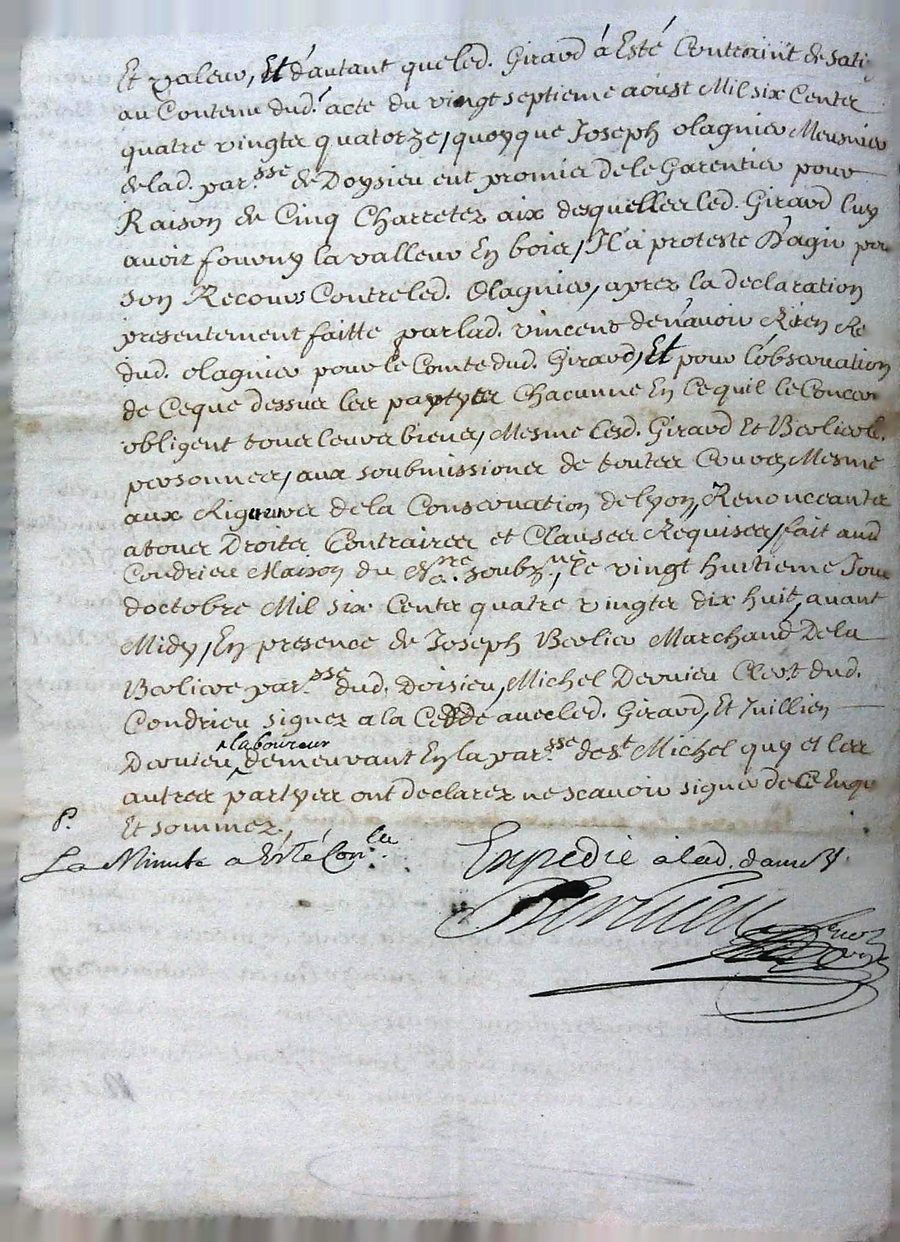 Et valeur, Et d'autant que led. Giraud à Esté Contraint de sati
au Contenu dud. acte du vingt septieme aoust Mil six Cents
quatre vingts quatorze, quoyque Joseph olagnier Meusnier
de lad. par.sse de Doysieu eut promis de le Garentir pour
Raison de Cinq Charretes aix desquelles led. Giraud luy
avoir fourny la valleur En bois, Il à proteste D'agir pour
son Recours Contre led. Olagnier, apres la declaration
presentement faitte par lad. vincent de n'avoir Rien Re
dud. olagnier pour le Comte dud. Giraud, Et pour l'observation
de Ceque dessus les partyes Chacunne En Ce quil le Concer
obligent tous leurs biens, Mesme lesd. Giraud Et Berlieve.
personnes, aux soubmissions de toutes Cours, Mesme
aux Rigeurs de la Conservation de lyon, Renonceants
a tous Droits Contraires et Clauses Requises, fait aud
Condrieu Maison du No.re soubz.né, le vingt huitieme Jour
doctobre Mil six Cents quatre vingts dix huit, avant
Midy, En presence de Joseph Berlier Marchand De la
Berlieve par.sse dud. Doisieu, Michel Dervieu Clerc dud.
Condrieu signez a la Cedde avec led. Giraud, Et Jullien
Dervieu laboureur demeurant En la par.sse de st Michel quy et les
autres partyes ont declarez ne scavoir signer de Ce Enqu
Et sommez,
P.
La Minute a Esté Con.lee Expedié à lad. dame